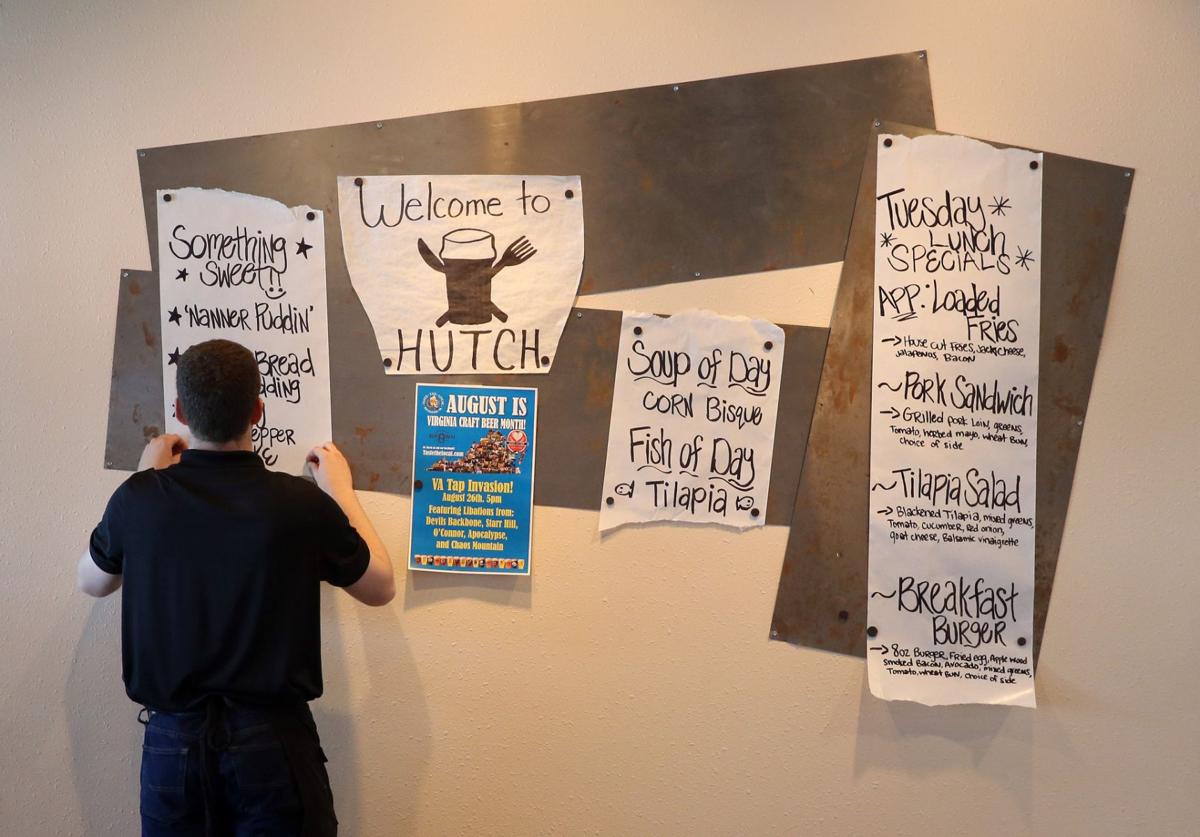 Something
Sweet!!
'Nanner Puddin'
Bread
Welcome to
HUTCH
AUGUST IS
VIRGINIA CRAFT BEER MONTH!
Tastethelocal.com
VA Tap Invasion!
August 26th, 5pm
Featuring Libations from:
Devils Backbone, Starr Hill,
O'Connor, Apocalypse,
and Chaos Mountain
Soup of Day
CORN Bisque
Fish of Day
Tilapia
Tuesday
LUNCH
SPECIALS
APP: Loaded
Fries
House cut Fries, Jack cheese,
Jalapenos, Bacon
~Pork Sandwich
Grilled pork loin, greens,
Tomato, herbed mayo, wheat Bun,
choice of side
~Tilapia Salad
Blackened Tilapia, mixed greens,
Tomato, cucumber, Red onion,
goat cheese, Balsamic vinaigrette
~Breakfast
Burger
8oz Burger, Fried egg, Apple wood
smoked Bacon, Avocado, mixed greens,
Tomato, wheat Bun, choice of side